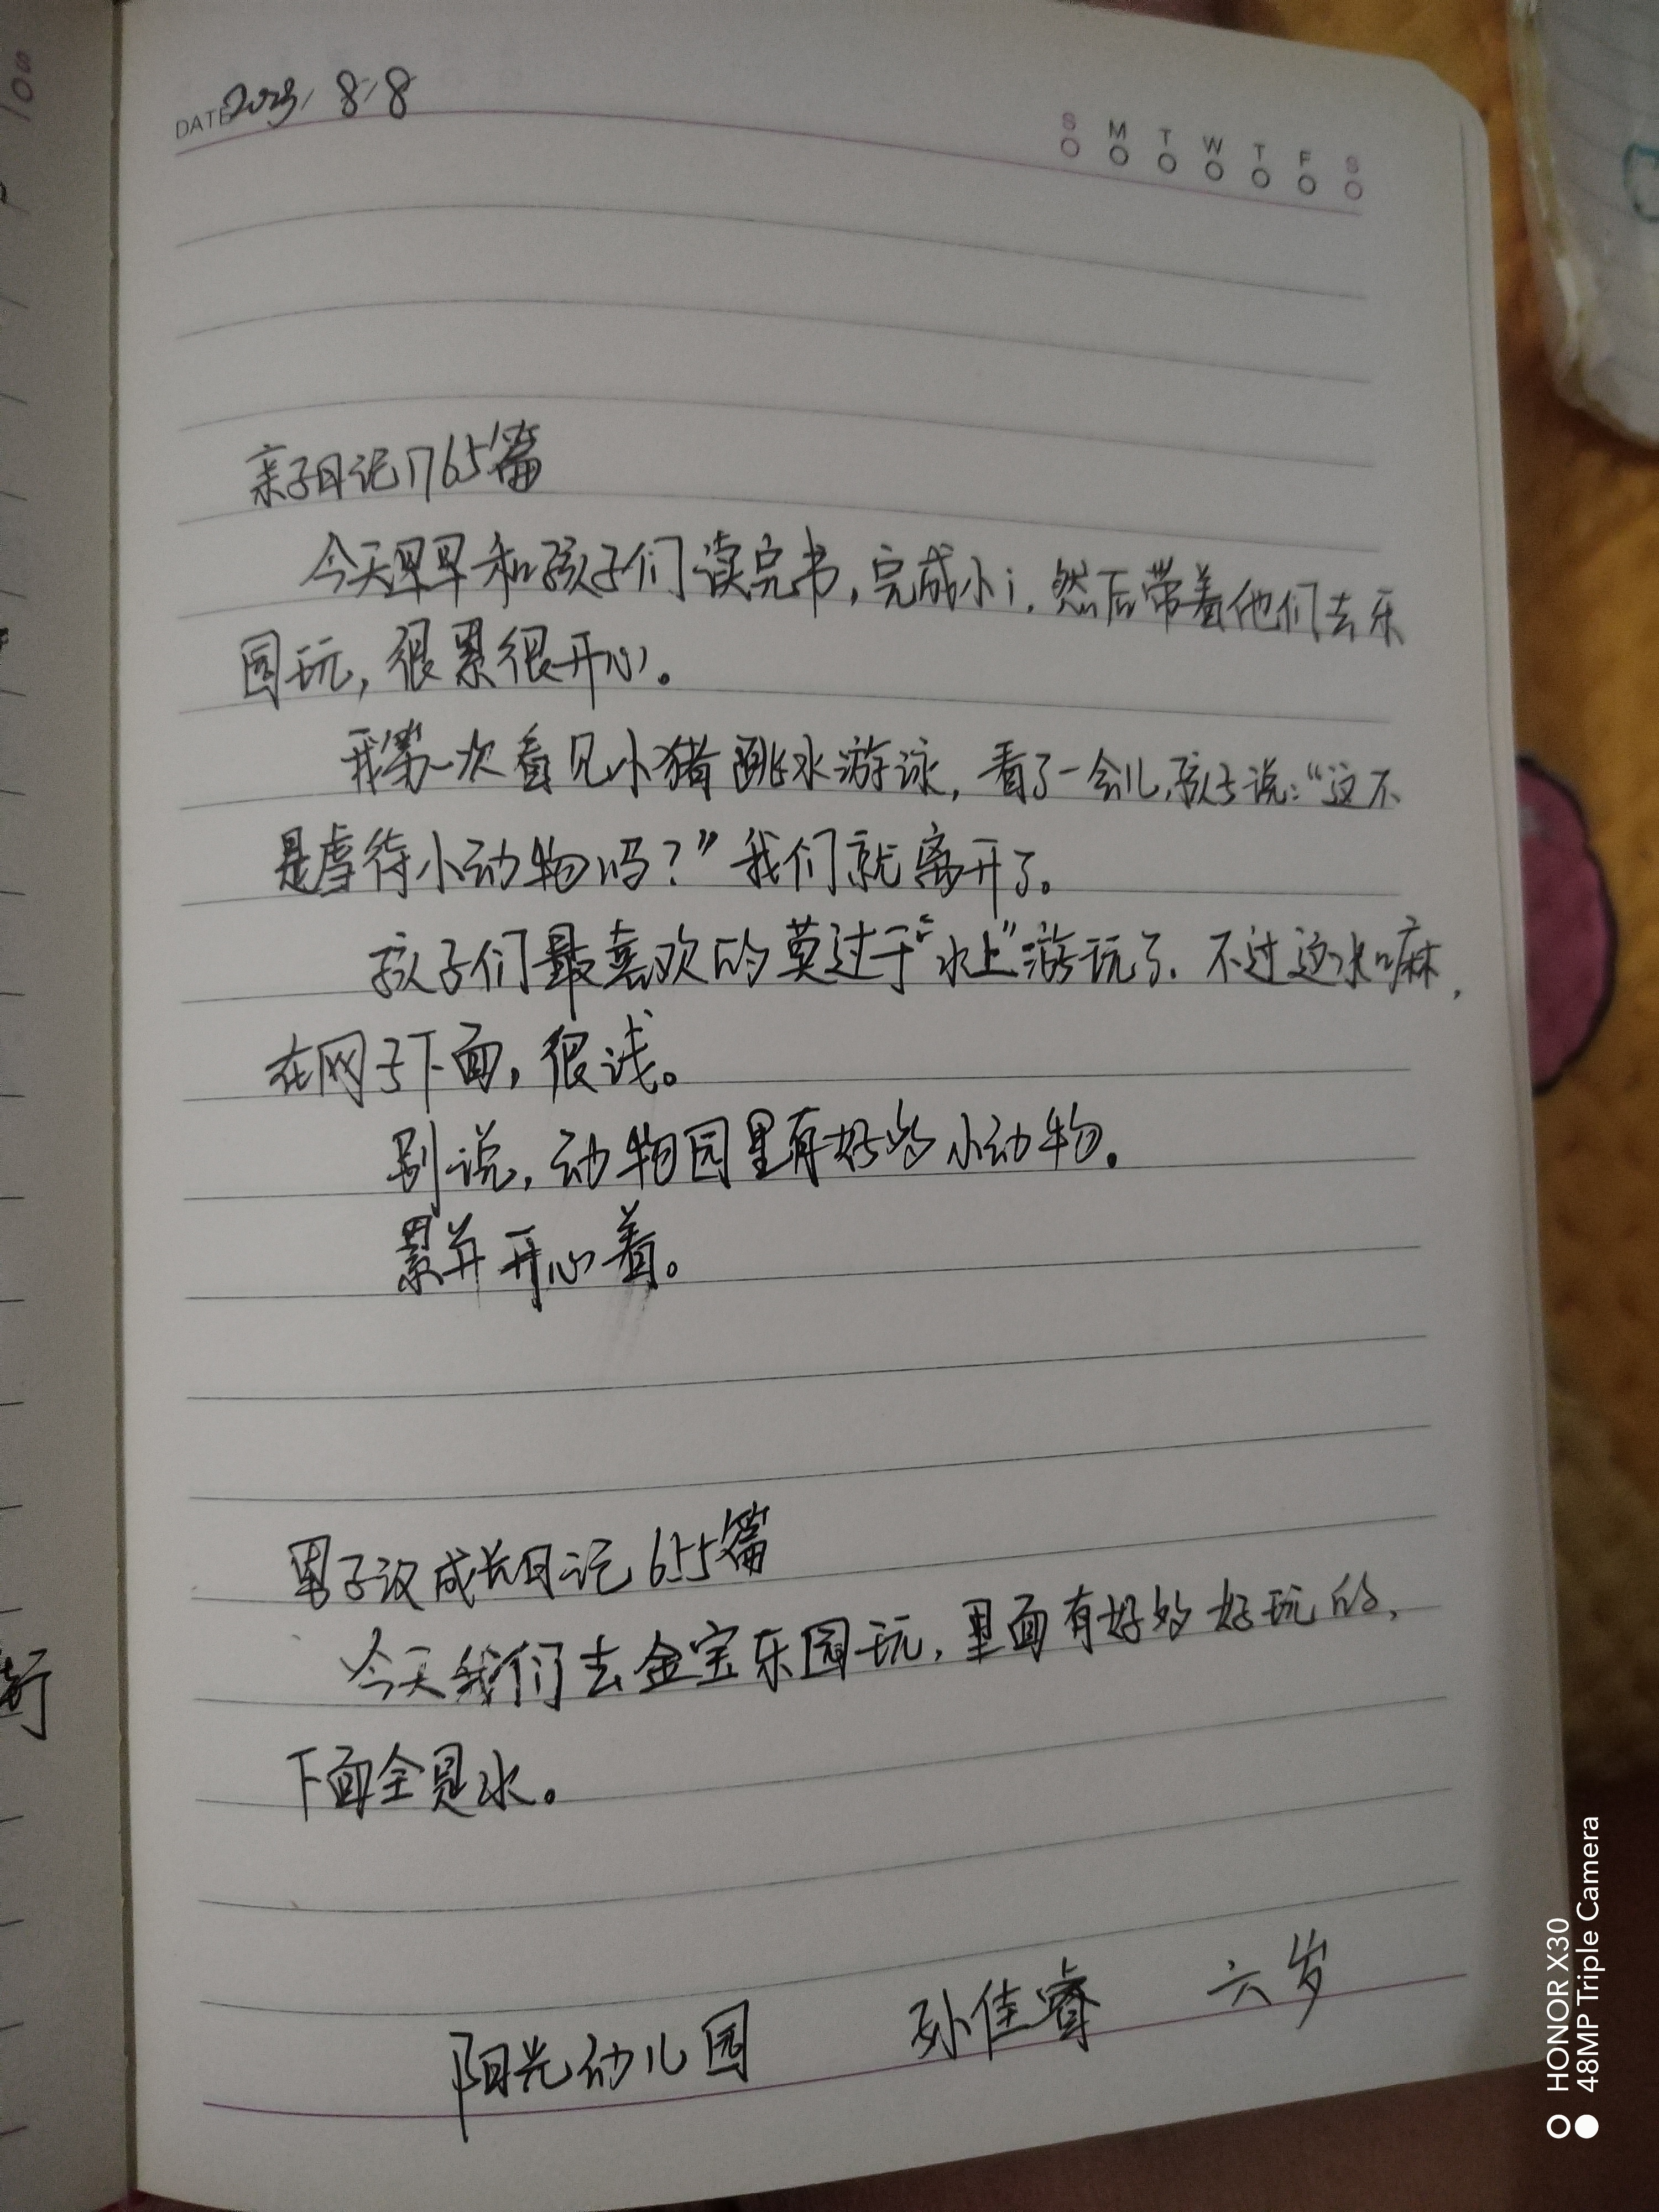 DATE 2023/8/8
S M T W T F S
亲子日记1765篇
今天早早和孩子们读完书,完成小i.然后带着他们去乐
园玩,很累很开心。
我第一次看见小猪跳水游泳,看了一会儿,孩子说:“这不
是虐待小动物吗?”我们就离开了。
孩子们最喜欢的莫过于“水上”游玩了.不过这水嘛,
在网子下面,很浅。
别说,动物园里有好多小动物.
累并开心着。
男子汉成长日记655篇
今天我们去金宝乐园玩,里面有好多好玩的,
下面全是水。
阳光幼儿园 孙佳睿 六岁
HONOR X30
48MP Triple Camera